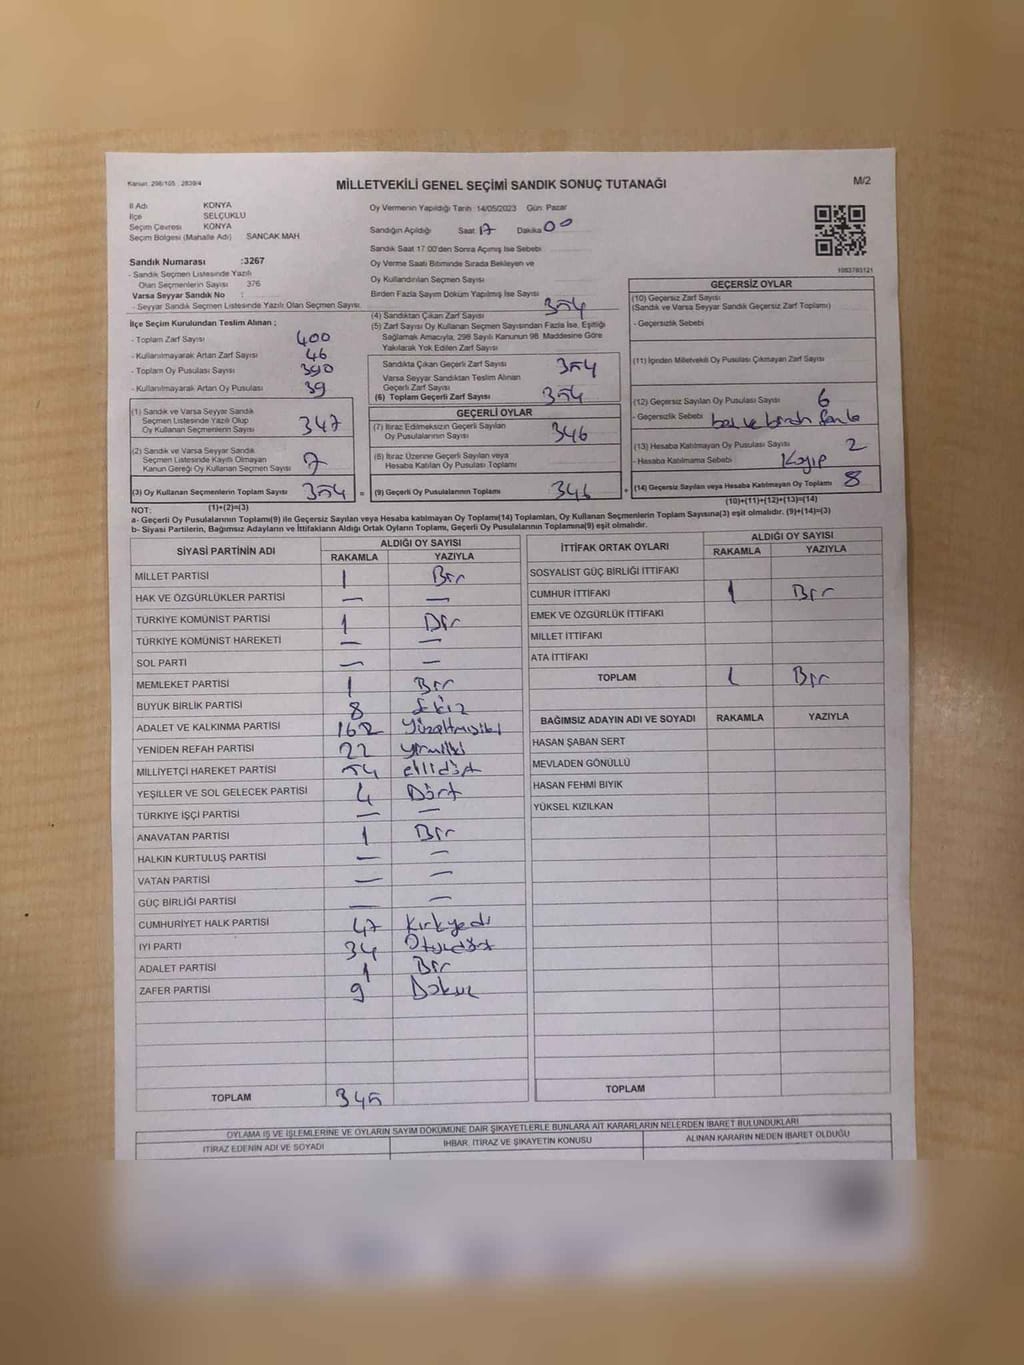 Kanun: 298/105 , 2839/4
MİLLETVEKİLİ GENEL SEÇİMİ SANDIK SONUÇ TUTANAĞI
M/2
İl Adı KONYA
İlçe SELÇUKLU
Seçim Çevresi KONYA
Seçim Bölgesi (Mahalle Adı) SANCAK MAH
Sandık Numarası :3267
- Sandık Seçmen Listesinde Yazılı
Olan Seçmenlerin Sayısı 376
Varsa Seyyar Sandık No :
- Seyyar Sandık Seçmen Listesinde Yazılı Olan Seçmen Sayısı:
İlçe Seçim Kurulundan Teslim Alınan ;
- Toplam Zarf Sayısı 400
- Kullanılmayarak Artan Zarf Sayısı 46
- Toplam Oy Pusulası Sayısı 390
- Kullanılmayarak Artan Oy Pusulası 39
(1) Sandık ve Varsa Seyyar Sandık
Seçmen Listesinde Yazılı Olup
Oy Kullanan Seçmenlerin Sayısı 347
(2) Sandık ve Varsa Seyyar Sandık
Seçmen Listesinde Kayıtlı Olmayan
Kanun Gereği Oy Kullanan Seçmen Sayısı 7
(3) Oy Kullanan Seçmenlerin Toplam Sayısı 354
(1)+(2)=(3)
Oy Vermenin Yapıldığı Tarih :14/05/2023 Gün: Pazar
Sandığın Açıldığı Saat 17 Dakika 00
Sandık Saat 17:00'den Sonra Açımış İse Sebebi
Oy Verme Saati Bitiminde Sırada Bekleyen ve
Oy Kullandırılan Seçmen Sayısı
Birden Fazla Sayım Döküm Yapılmış İse Sayısı
(4) Sandıktan Çıkan Zarf Sayısı 354
(5) Zarf Sayısı Oy Kullanan Seçmen Sayısından Fazla İse, Eşitliği
Sağlamak Amacıyla, 298 Sayılı Kanunun 98. Maddesine Göre
Yakılarak Yok Edilen Zarf Sayısı
Sandıkta Çıkan Geçerli Zarf Sayısı 354
Varsa Seyyar Sandıktan Teslim Alınan
Geçerli Zarf Sayısı
(6) Toplam Geçerli Zarf Sayısı 354
GEÇERLİ OYLAR
(7) İtiraz Edilmeksizin Geçerli Sayılan
Oy Pusulalarının Sayısı 346
(8) İtiraz Üzerine Geçerli Sayılan veya
Hesaba Katılan Oy Pusulası Toplamı
= (9) Geçerli Oy Pusulalarının Toplamı 346
1083783121
GEÇERSİZ OYLAR
(10) Geçersiz Zarf Sayısı
(Sandık ve Varsa Seyyar Sandık Geçersiz Zarf Toplamı)
- Geçersizlik Sebebi
(11) İçinden Milletvekili Oy Pusulası Çıkmayan Zarf Sayısı
(12) Geçersiz Sayılan Oy Pusulası Sayısı 6
- Geçersizlik Sebebi
(13) Hesaba Katılmayan Oy Pusulası Sayısı 2
- Hesaba Katılmama Sebebi Kayıp
+ (14) Geçersiz Sayılan veya Hesaba Katılmayan Oy Toplamı 8
(10)+(11)+(12)+(13)=(14)
NOT:
a- Geçerli Oy Pusulalarının Toplamı(9) ile Geçersiz Sayılan veya Hesaba katılmayan Oy Toplamı(14) Toplamları, Oy Kullanan Seçmenlerin Toplam Sayısına(3) eşit olmalıdır. (9)+(14)=(3)
b- Siyasi Partilerin, Bağımsız Adayların ve İttifakların Aldığı Ortak Oyların Toplamı, Geçerli Oy Pusulalarının Toplamına(9) eşit olmalıdır.
SİYASİ PARTİNİN ADI ALDIĞI OY SAYISI
RAKAMLA YAZIYLA
MİLLET PARTİSİ 1 Bir
HAK VE ÖZGÜRLÜKLER PARTİSİ — —
TÜRKİYE KOMÜNİST PARTİSİ 1 Bir
TÜRKİYE KOMÜNİST HAREKETİ — —
SOL PARTİ — —
MEMLEKET PARTİSİ 1 Bir
BÜYÜK BİRLİK PARTİSİ 8 Sekiz
ADALET VE KALKINMA PARTİSİ 162 Yüzaltmışiki
YENİDEN REFAH PARTİSİ 22 yirmiiki
MİLLİYETÇİ HAREKET PARTİSİ 54 ellidört
YEŞİLLER VE SOL GELECEK PARTİSİ 4 Dört
TÜRKİYE İŞÇİ PARTİSİ — —
ANAVATAN PARTİSİ 1 Bir
HALKIN KURTULUŞ PARTİSİ — —
VATAN PARTİSİ — —
GÜÇ BİRLİĞİ PARTİSİ — —
CUMHURİYET HALK PARTİSİ 47 Kırkyedi
İYİ PARTİ 34 Otuzdört
ADALET PARTİSİ 1 Bir
ZAFER PARTİSİ 9 Dokuz
TOPLAM 345
İTTİFAK ORTAK OYLARI ALDIĞI OY SAYISI
RAKAMLA YAZIYLA
SOSYALİST GÜÇ BİRLİĞİ İTTİFAKI
CUMHUR İTTİFAKI 1 Bir
EMEK VE ÖZGÜRLÜK İTTİFAKI
MİLLET İTTİFAKI
ATA İTTİFAKI
TOPLAM 1 Bir
BAĞIMSIZ ADAYIN ADI VE SOYADI RAKAMLA YAZIYLA
HASAN ŞABAN SERT
MEVLADEN GÖNÜLLÜ
HASAN FEHMİ BIYIK
YÜKSEL KIZILKAN
TOPLAM
OYLAMA İŞ VE İŞLEMLERİNE VE OYLARIN SAYIM DÖKÜMÜNE DAİR ŞİKAYETLERLE BUNLARA AİT KARARLARIN NELERDEN İBARET BULUNDUKLARI
İTİRAZ EDENİN ADI VE SOYADI İHBAR, İTİRAZ VE ŞİKAYETİN KONUSU ALINAN KARARIN NEDEN İBARET OLDUĞU